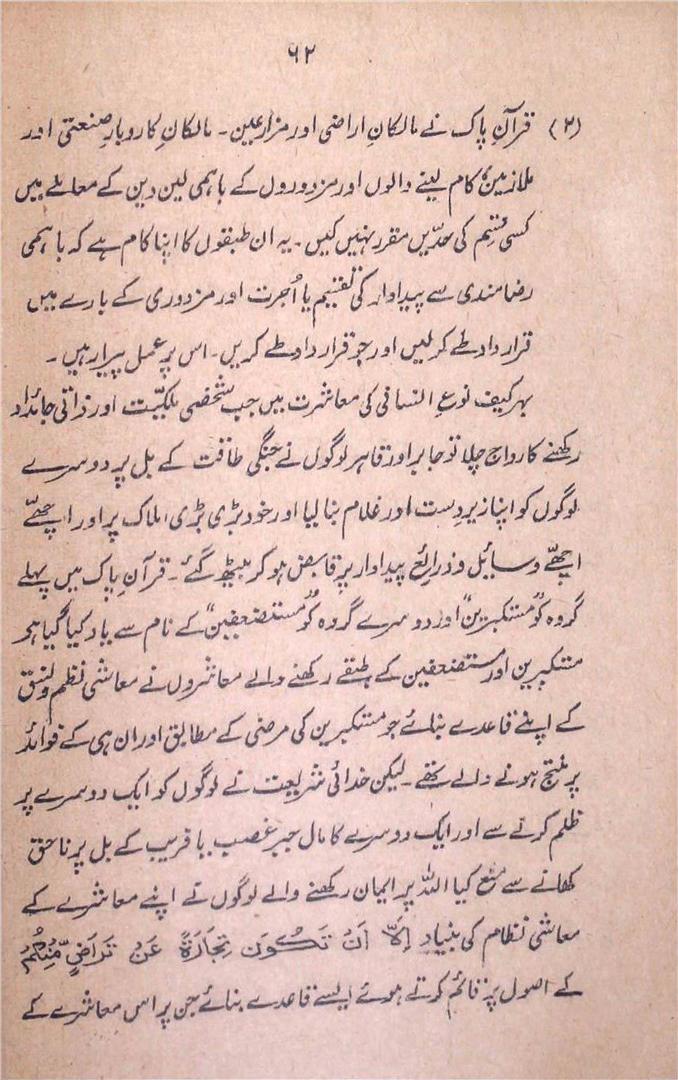 ۶۲
(۲) قرآنِ پاک نے مالکانِ اراضی اور مزارعین۔ مالکانِ کاروبارِ صنعتی اور
ملازمین، کام لینے والوں اور مزدوروں کے باہمی لین دین کے معاملے میں
کسی قسم کی حدّیں مقرر نہیں کیں۔ یہ ان طبقوں کا اپنا کام ہے کہ باہمی
رضامندی سے پیداوار کی تقسیم یا اُجرت اور مزدوری کے بارے میں
قرارداد طے کرلیں اور جو قرارداد طے کریں۔ اس پر عمل پیرا رہیں۔
بہرکیف نوعِ انسانی کی معاشرت میں جب شخصی ملکیّت اور ذاتی جائداد
رکھنے کا رواج چلا تو جابر اور قاہر لوگوں نے جنگی طاقت کے بل پر دوسرے
لوگوں کو اپنا زیردست اور غلام بنا لیا اور خود بڑی بڑی املاک پر اور اچھے
اچھے وسایل و ذرائع پیداوار پر قابض ہو کر بیٹھ گئے۔ قرآنِ پاک میں پہلے
گروہ کو "مستکبرین" اور دوسرے گروہ کو "مستضعفین" کے نام سے یاد کیا گیا ہے
مستکبرین اور مستضعفین کے طبقے رکھنے والے معاشروں نے معاشی نظم و نسق
کے اپنے قاعدے بنائے جو مستکبرین کی مرضی کے مطابق اور ان ہی کے فوائد
پر منتج ہونے والے تھے۔ لیکن خدائی شریعت نے لوگوں کو ایک دوسرے پر
ظلم کرنے سے اور ایک دوسرے کا مال جبر غصب یا فریب کے بل پر ناحق
کھانے سے منع کیا اللہ پر ایمان رکھنے والے لوگوں نے اپنے معاشرے کے
معاشی نظام کی بنیاد اِلَّا اَنْ تَكُوْنَ تِجَارَةً عَنْ تَرَاضٍ مِّنْكُمْ
کے اصول پر قائم کرتے ہوئے ایسے قاعدے بنائے جن پر اس معاشرے کے